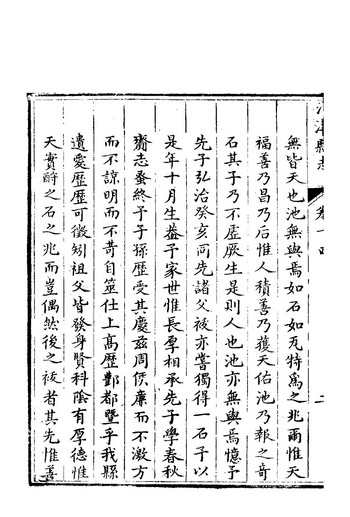 卷十四
無皆天也池無與焉如石如瓦特為之兆爾惟天
福善乃昌乃后惟人積善乃獲天佑池乃報之奇
石其子乃不歷厥生是則人也池亦無與焉憶予
先子弘治癸亥同先諸父祓亦嘗獨得一石子以
是年十月生益予家世惟長厚相承先子學春秋
齎志蚤終予子孫歷受其慶茲周侯廉而不激方
而不諒明而不苛自筮仕上高歷酆都暨乎我縣
遺愛歷歷可徵矧祖父皆發身賢科陰有厚德惟
天實酹之石之兆而豈偶然後之祓者其先惟善